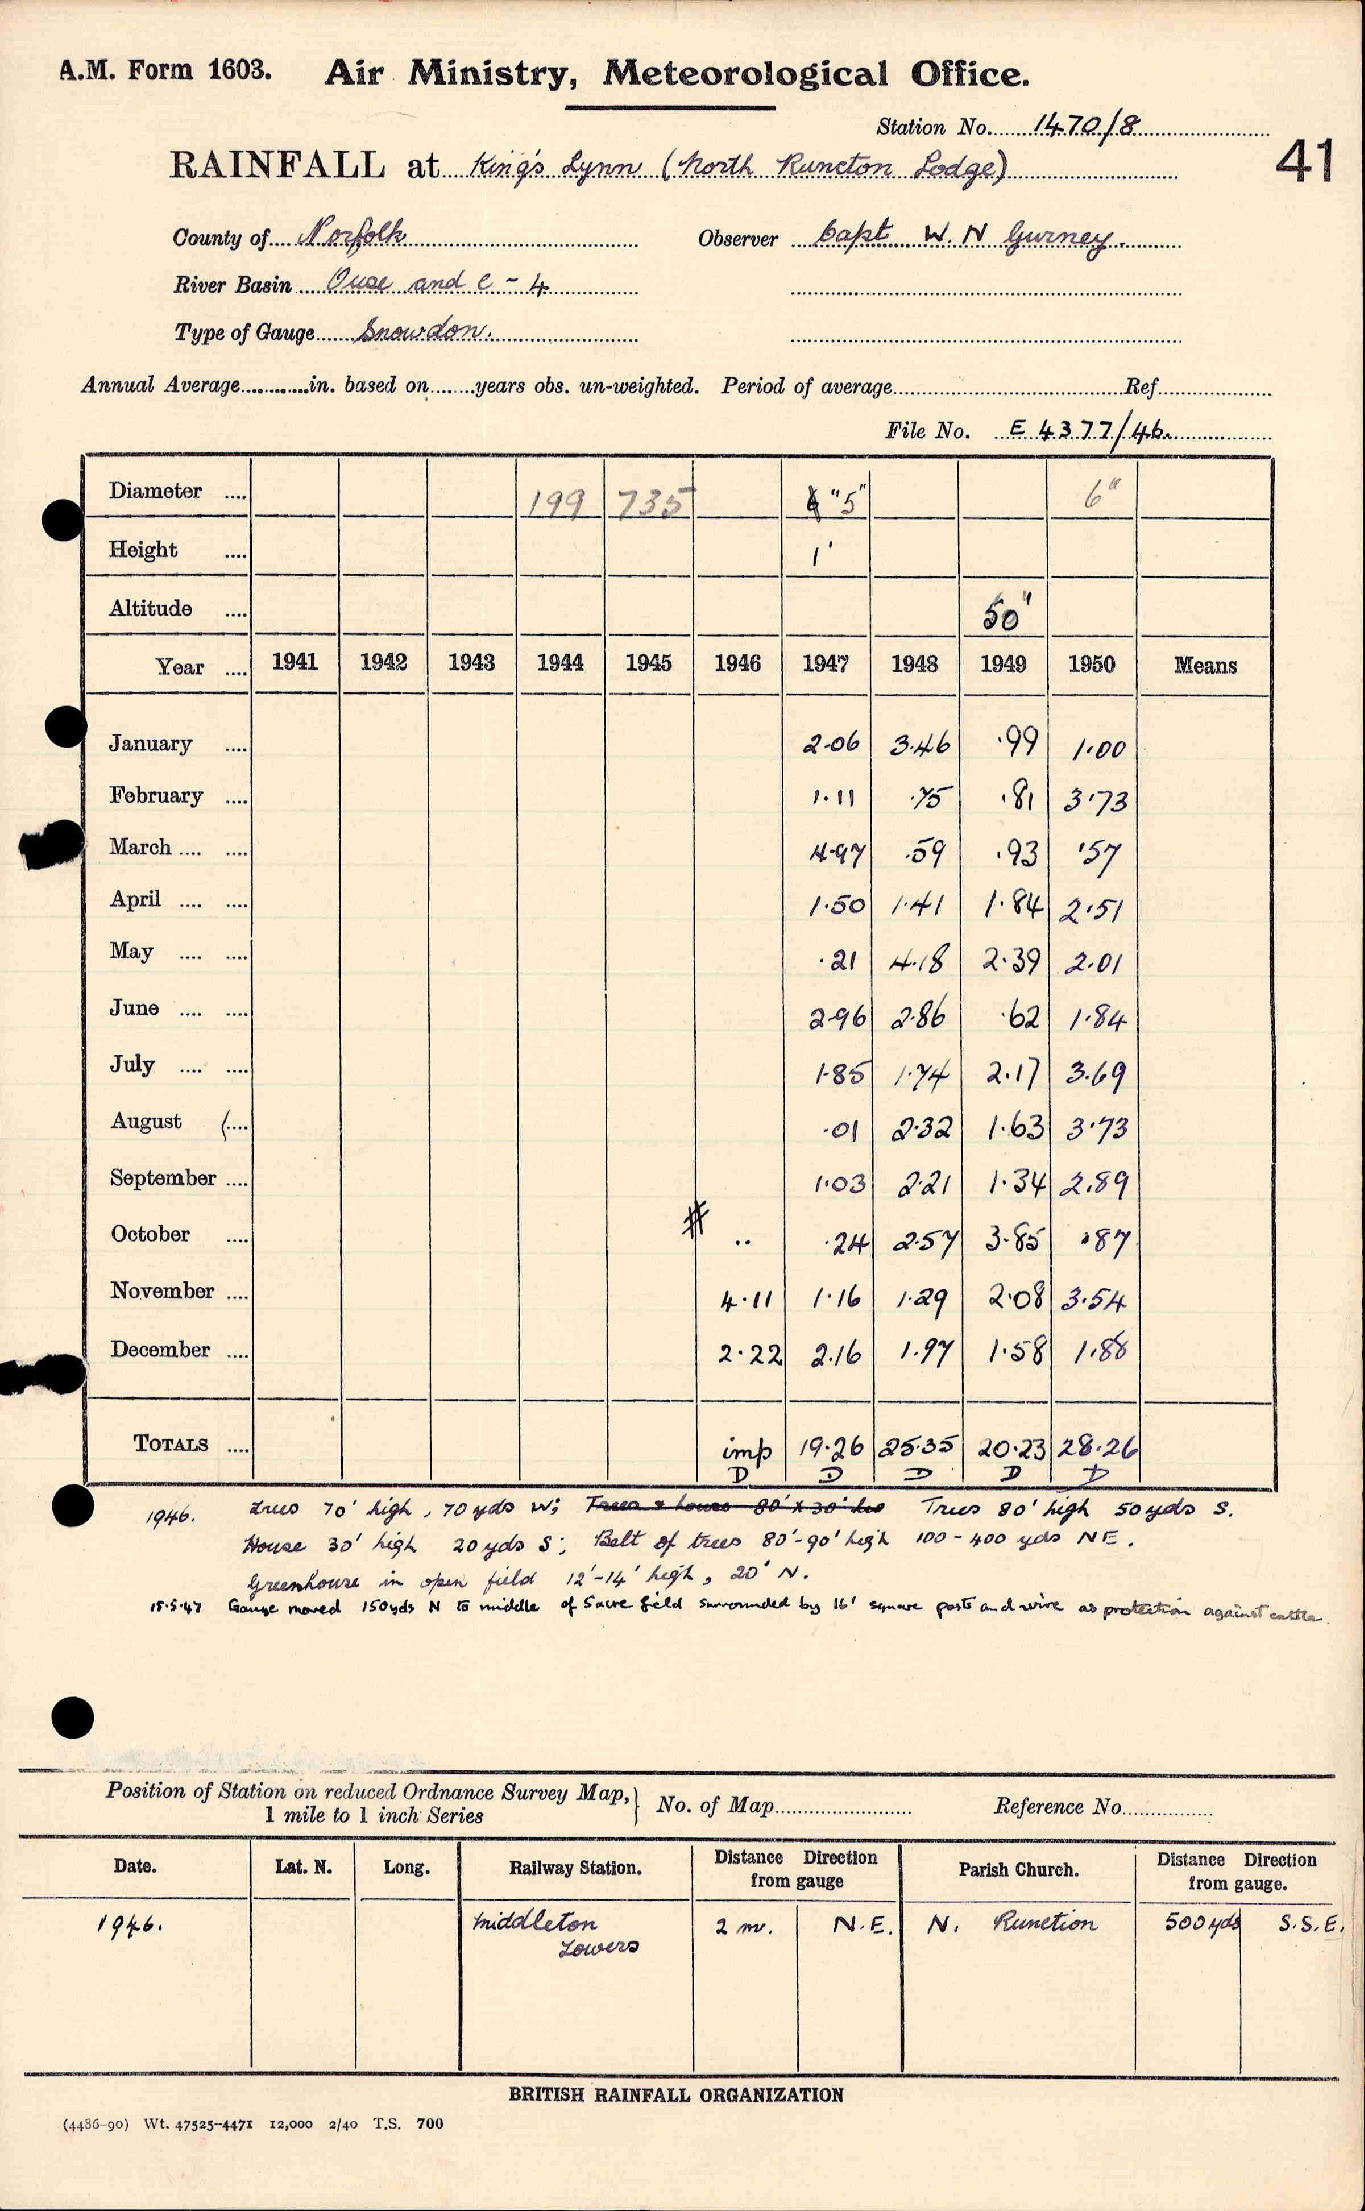 A.M. Form 1603. Air Ministry, Meteorological Office.
Station No. 1470/8
41
RAINFALL at King's Lynn (North Runcton Lodge)
County of Norfolk Observer Capt W. N Gurney.
River Basin Ouse and C - 4
Type of Gauge Snowdon.
Annual Average............in. based on.......years obs. un-weighted. Period of average..............Ref..............
File No. E 4377/46.
Diameter .... 199 735 "5" 6"
Height .... 1'
Altitude .... 50'
Year .... 1941 1942 1943 1944 1945 1946 1947 1948 1949 1950 Means
January .... 2.06 3.46 .99 1.00
February .... 1.11 .75 .81 3.73
March .... .... 4.97 .59 .93 .57
April .... .... 1.50 1.41 1.84 2.51
May .... .... .21 4.18 2.39 2.01
June .... .... 2.96 2.86 .62 1.84
July .... .... 1.85 1.74 2.17 3.69
August .... .01 2.32 1.63 3.73
September .... 1.03 2.21 1.34 2.89
October .... # .. .24 2.57 3.85 .87
November .... 4.11 1.16 1.29 2.08 3.54
December .... 2.22 2.16 1.97 1.58 1.88
TOTALS .... imp 19.26 25.35 20.23 28.26
D D D D D
1946. Trees 70' high, 70 yds W; Trees & house 80' x 30' Trees 80' high 50 yds S.
House 30' high 20 yds S; Belt of trees 80'-90' high 100 - 400 yds NE.
Greenhouse in open field 12'-14' high, 20' N.
15.5.47 Gauge moved 150 yds N to middle of 5 acre field surrounded by 16' square posts and wire as protection against cattle.
Position of Station on reduced Ordnance Survey Map, 1 mile to 1 inch Series } No. of Map.............. Reference No..............
Date. Lat. N. Long. Railway Station. Distance Direction from gauge Parish Church. Distance Direction from gauge.
1946. Middleton Towers 2 m. N.E. N. Runction 500 yds S.S.E.
BRITISH RAINFALL ORGANIZATION
(4486-90) Wt. 47525-4471 12,000 2/40 T.S. 700